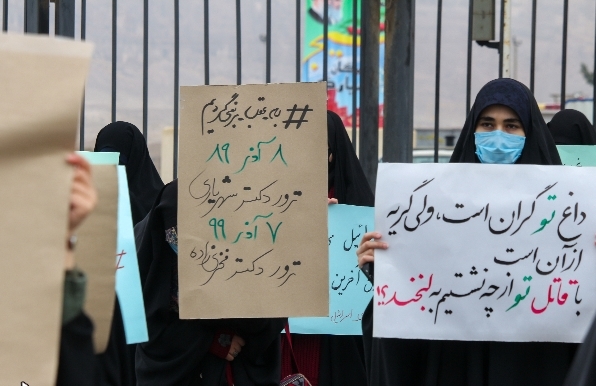 #به_عقب_برنمی‌گردیم
۸ آذر ۸۹
ترور دکتر شهریاری
۷ آذر ۹۹
ترور دکتر فخری‌زاده
داغ تو گران است، ولی گریه
از آن است
با قاتل تو از چه نشستیم به لبخند؟!
آخرین